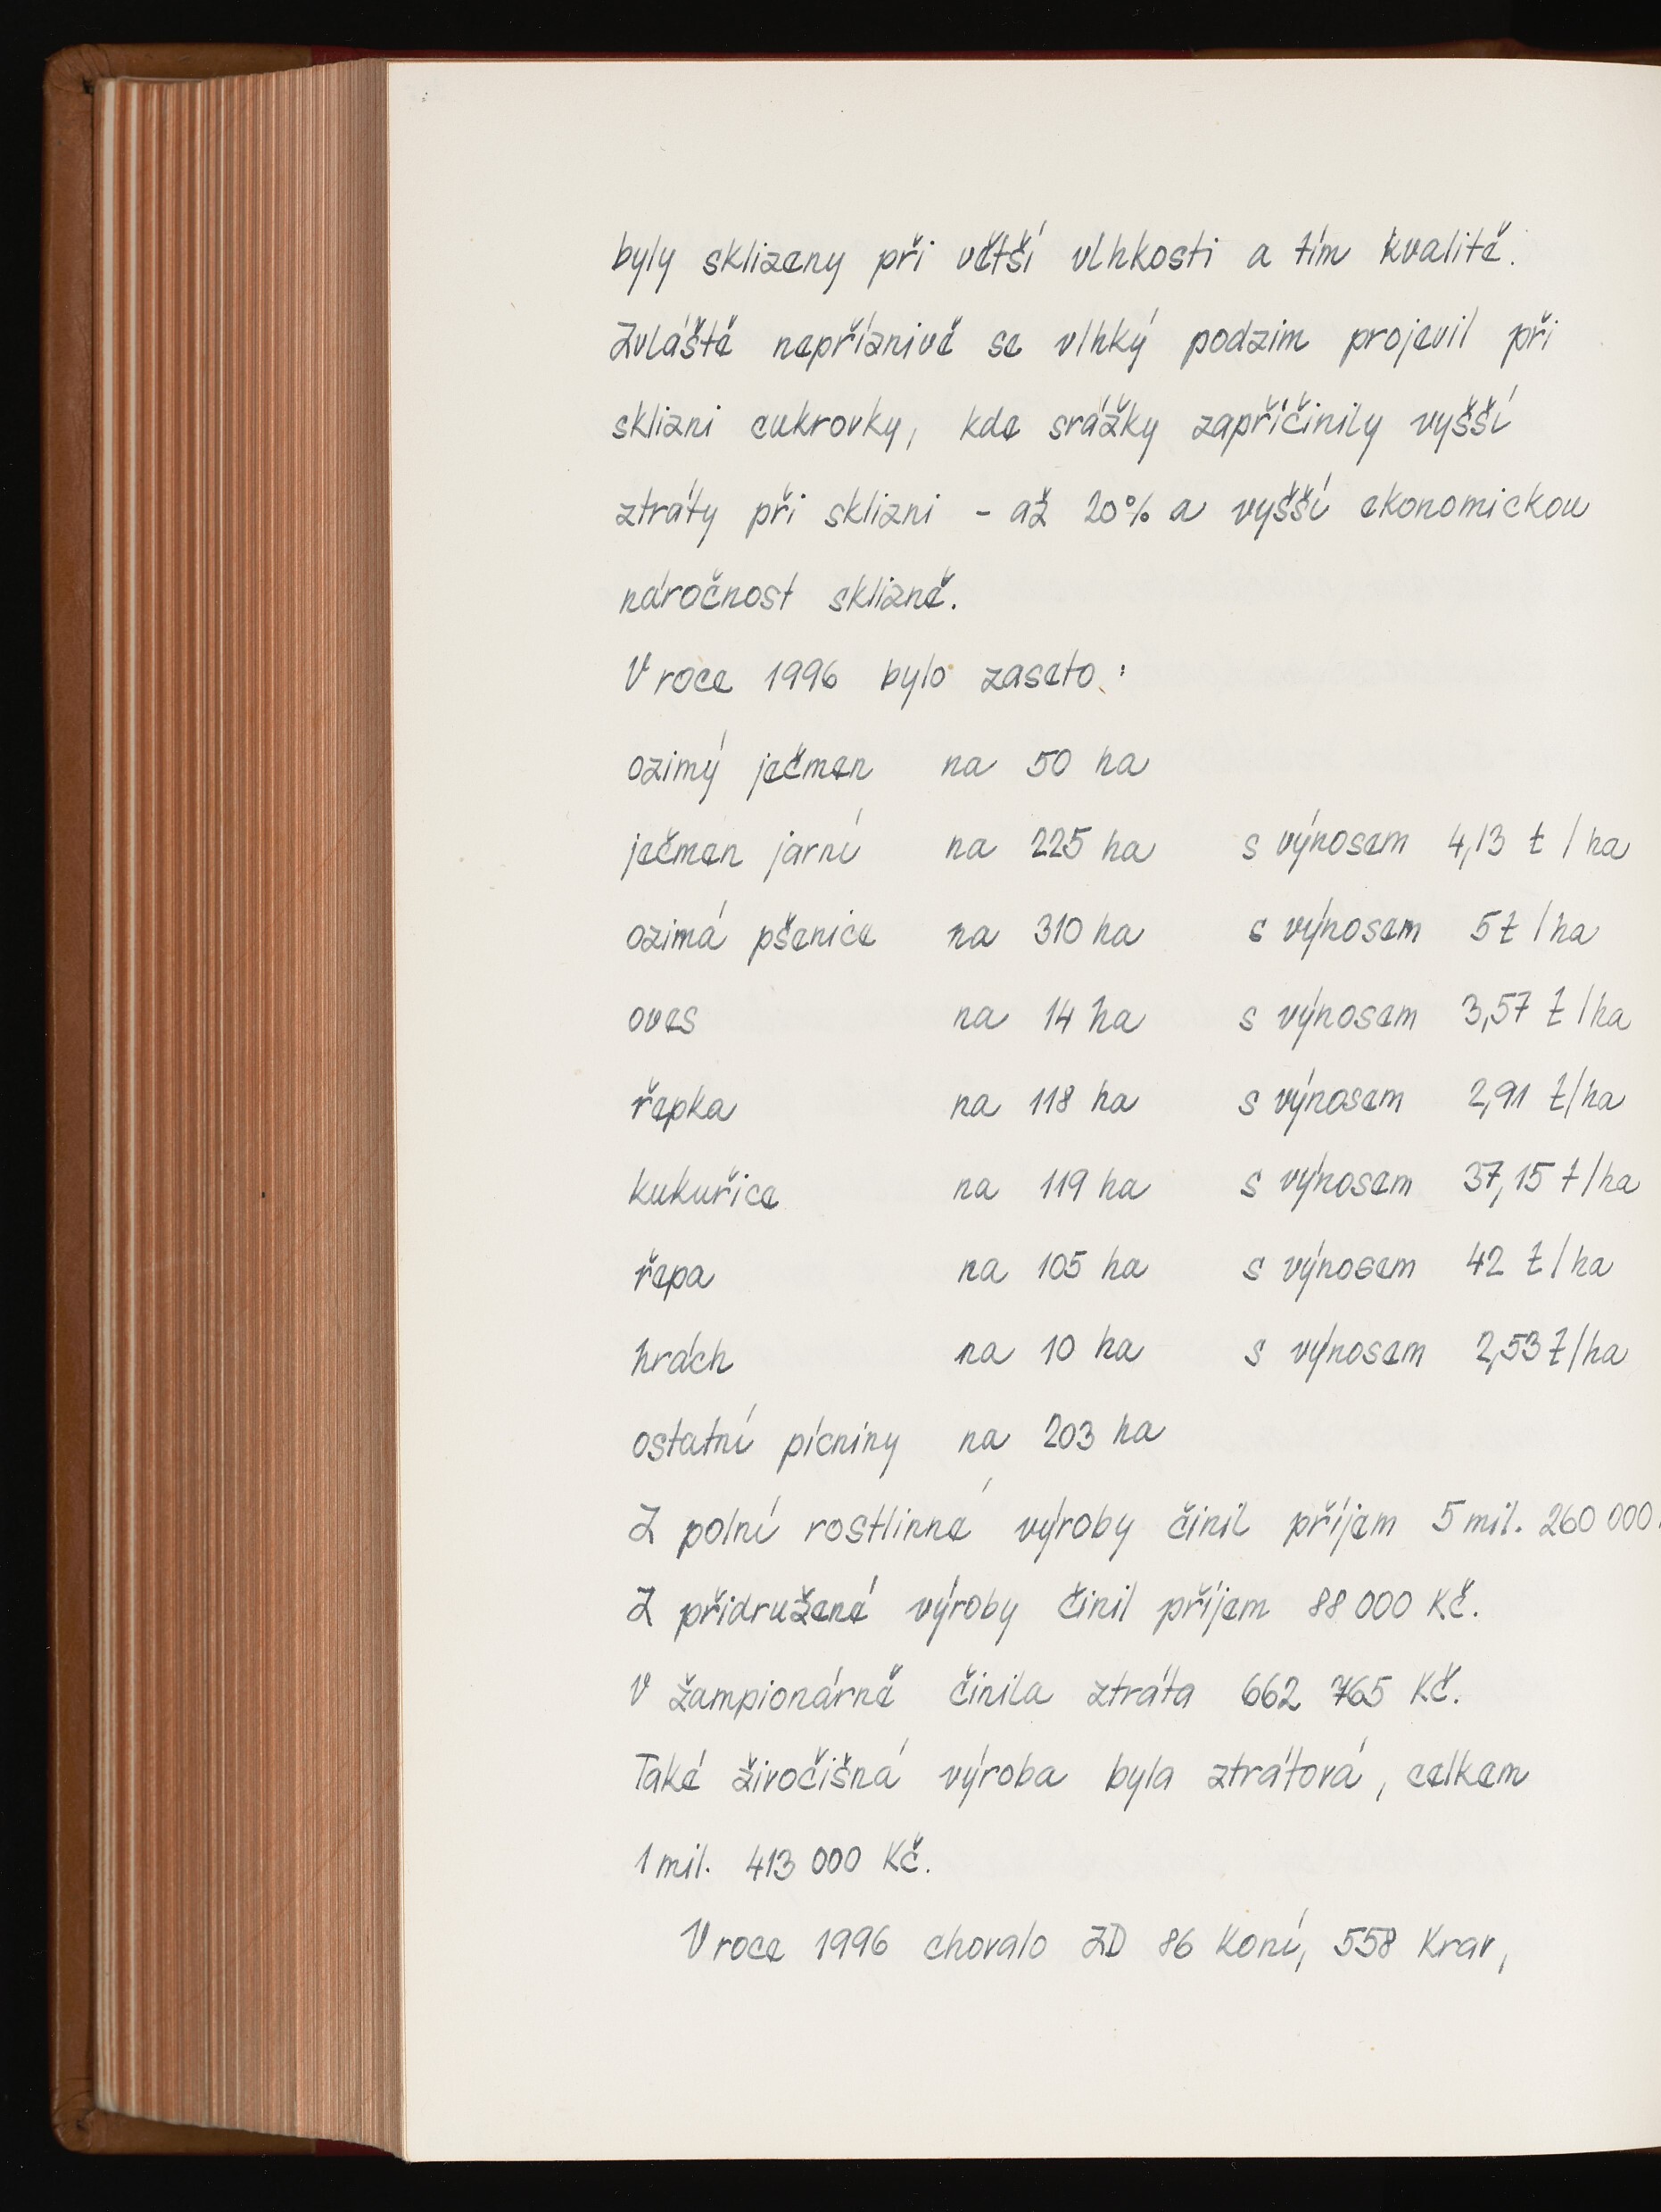 byly sklizeny při větší vlhkosti a tím kvalitě.
Zvláště nepříznivě se vlhký podzim projevil při
sklizni cukrovky, kde srážky zapříčinily vyšší
ztráty při sklizni - až 20% a vyšší ekonomickou
náročnost sklizně.
V roce 1996 bylo zaseto:
ozimý ječmen na 50 ha
ječmen jarní na 225 ha s výnosem 4,13 t/ha
ozimá pšenice na 310 ha s výnosem 5t/ha
oves na 14 ha s výnosem 3,57 t/ha
řepka na 118 ha s výnosem 2,91 t/ha
kukuřice na 119 ha s výnosem 37,15 t/ha
řepa na 105 ha s výnosem 42 t/ha
hrách na 10 ha s výnosem 2,53 t/ha
ostatní pícniny na 203 ha
Z polní rostlinné výroby činil příjem 5 mil. 260 000.
Z přidružené výroby činil příjem 88 000 Kč.
V žampionárně činila ztráta 662 765 Kč.
Také živočišná výroba byla ztrátová, celkem
1 mil. 413 000 Kč.
V roce 1996 chovalo ZD 86 koní, 558 krav,